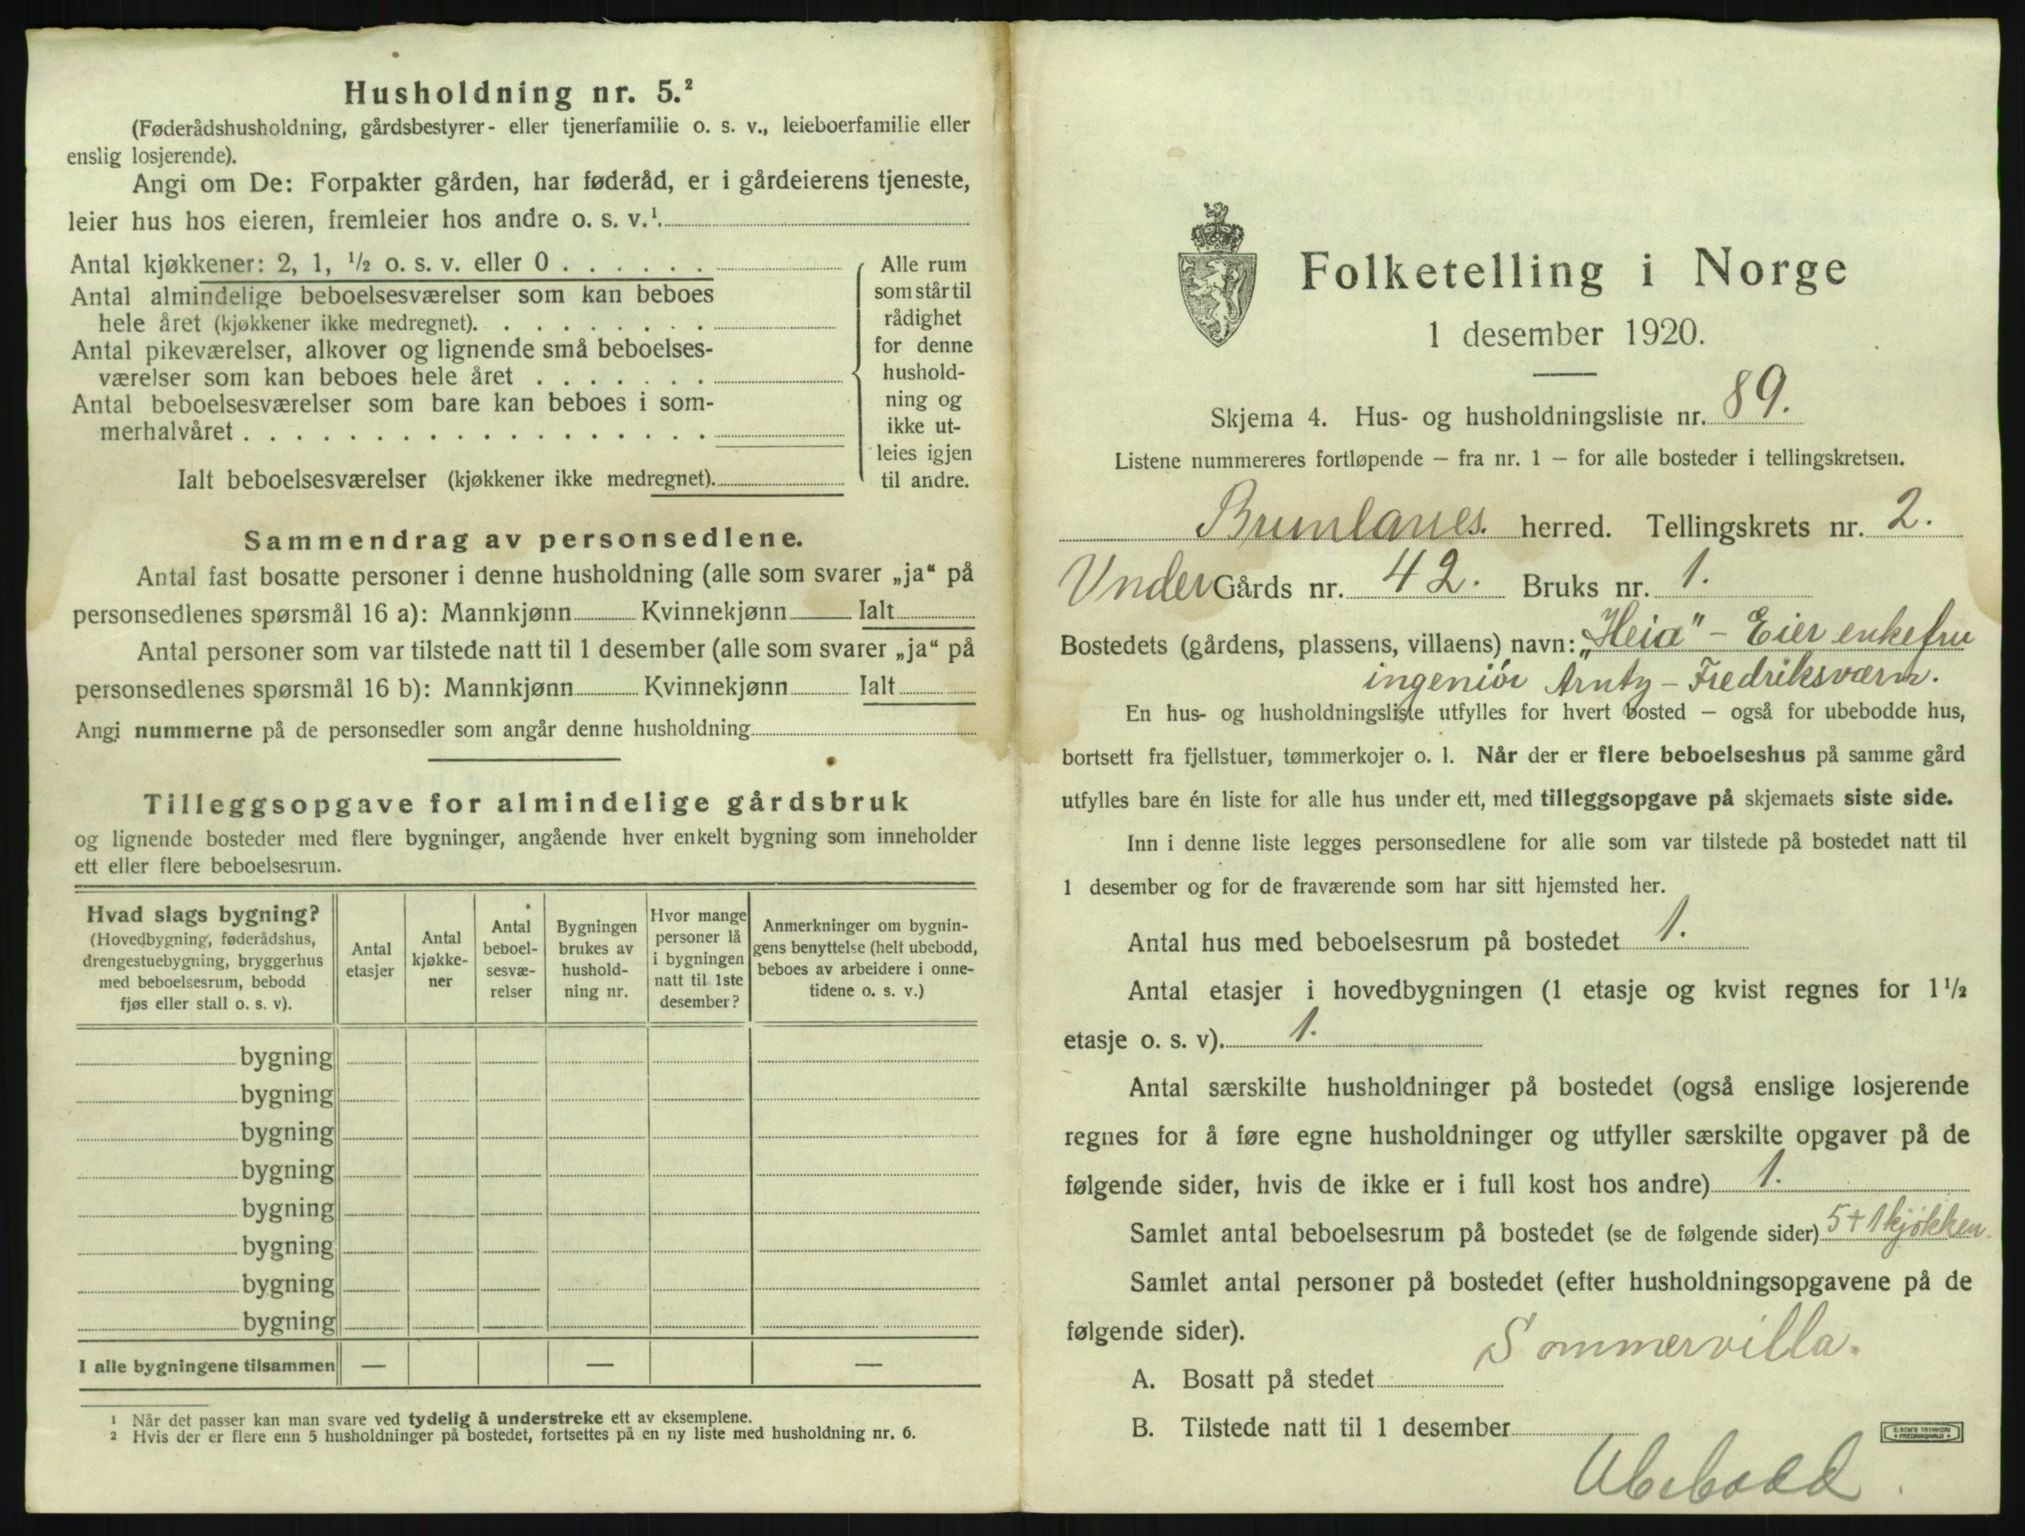 Husholdning nr. 5.²
(Føderådshusholdning, gårdsbestyrer- eller tjenerfamilie o. s. v., leieboerfamilie eller
enslig losjerende).
Angi om De: Forpakter gården, har føderåd, er i gårdeierens tjeneste,
leier hus hos eieren, fremleier hos andre o. s. v.¹.
Antal kjøkkener: 2, 1, ½ o. s. v. eller 0
Antal almindelige beboelsesværelser som kan beboes
hele året (kjøkkener ikke medregnet).
Antal pikeværelser, alkover og lignende små beboelses-
værelser som kan beboes hele året
Antal beboelsesværelser som bare kan beboes i som-
merhalvåret
Ialt beboelsesværelser (kjøkkener ikke medregnet).
Alle rum
som står til
rådighet
for denne
hushold-
ning og
ikke ut-
leies igjen
til andre.
Sammendrag av personsedlene.
Antal fast bosatte personer i denne husholdning (alle som svarer „ja“ på
personsedlenes spørsmål 16 a): Mannkjønn Kvinnekjønn Ialt
Antal personer som var tilstede natt til 1 desember (alle som svarer „ja“ på
personsedlenes spørsmål 16 b): Mannkjønn Kvinnekjønn Ialt
Angi nummerne på de personsedler som angår denne husholdning
Tilleggsopgave for almindelige gårdsbruk
og lignende bosteder med flere bygninger, angående hver enkelt bygning som inneholder
ett eller flere beboelsesrum.
Hvad slags bygning?
(Hovedbygning, føderådshus,
drengestuebygning, bryggerhus
med beboelsesrum, bebodd
fjøs eller stall o. s. v).
Antal
etasjer
Antal
kjøkke-
ner
Antal
beboel-
sesvæ-
relser
Bygningen
brukes av
hushold-
ning nr.
Hvor mange
personer lå
i bygningen
natt til 1ste
desember?
Anmerkninger om bygnin-
gens benyttelse (helt ubebodd,
beboes av arbeidere i onne-
tidene o. s. v.)
bygning
bygning
bygning
bygning
bygning
bygning
bygning
bygning
I alle bygningene tilsammen — — —
¹ Når det passer kan man svare ved tydelig å understreke ett av eksemplene.
² Hvis der er flere enn 5 husholdninger på bostedet, fortsettes på en ny liste med husholdning nr. 6.
Folketelling i Norge
1 desember 1920.
Skjema 4. Hus- og husholdningsliste nr. 89.
Listene nummereres fortløpende – fra nr. 1 – for alle bosteder i tellingskretsen.
Brunlanes. herred. Tellingskrets nr. 2.
Under Gårds nr. 42. Bruks nr. 1.
Bostedets (gårdens, plassens, villaens) navn: „Heia" – Eier enkefru
ingeniør Arntz – Fredriksværn.
En hus- og husholdningsliste utfylles for hvert bosted – også for ubebodde hus,
bortsett fra fjellstuer, tømmerkojer o. l. Når der er flere beboelseshus på samme gård
utfylles bare én liste for alle hus under ett, med tilleggsopgave på skjemaets siste side.
Inn i denne liste legges personsedlene for alle som var tilstede på bostedet natt til
1 desember og for de fraværende som har sitt hjemsted her.
Antal hus med beboelsesrum på bostedet 1.
Antal etasjer i hovedbygningen (1 etasje og kvist regnes for 1½
etasje o. s. v). 1.
Antal særskilte husholdninger på bostedet (også enslige losjerende
regnes for å føre egne husholdninger og utfyller særskilte opgaver på de
følgende sider, hvis de ikke er i full kost hos andre) 1.
Samlet antal beboelsesrum på bostedet (se de følgende sider) 5 + 1 kjøkken.
Samlet antal personer på bostedet (efter husholdningsopgavene på de
følgende sider).
Sommervilla.
A. Bosatt på stedet
B. Tilstede natt til 1 desember
Ubebodd.